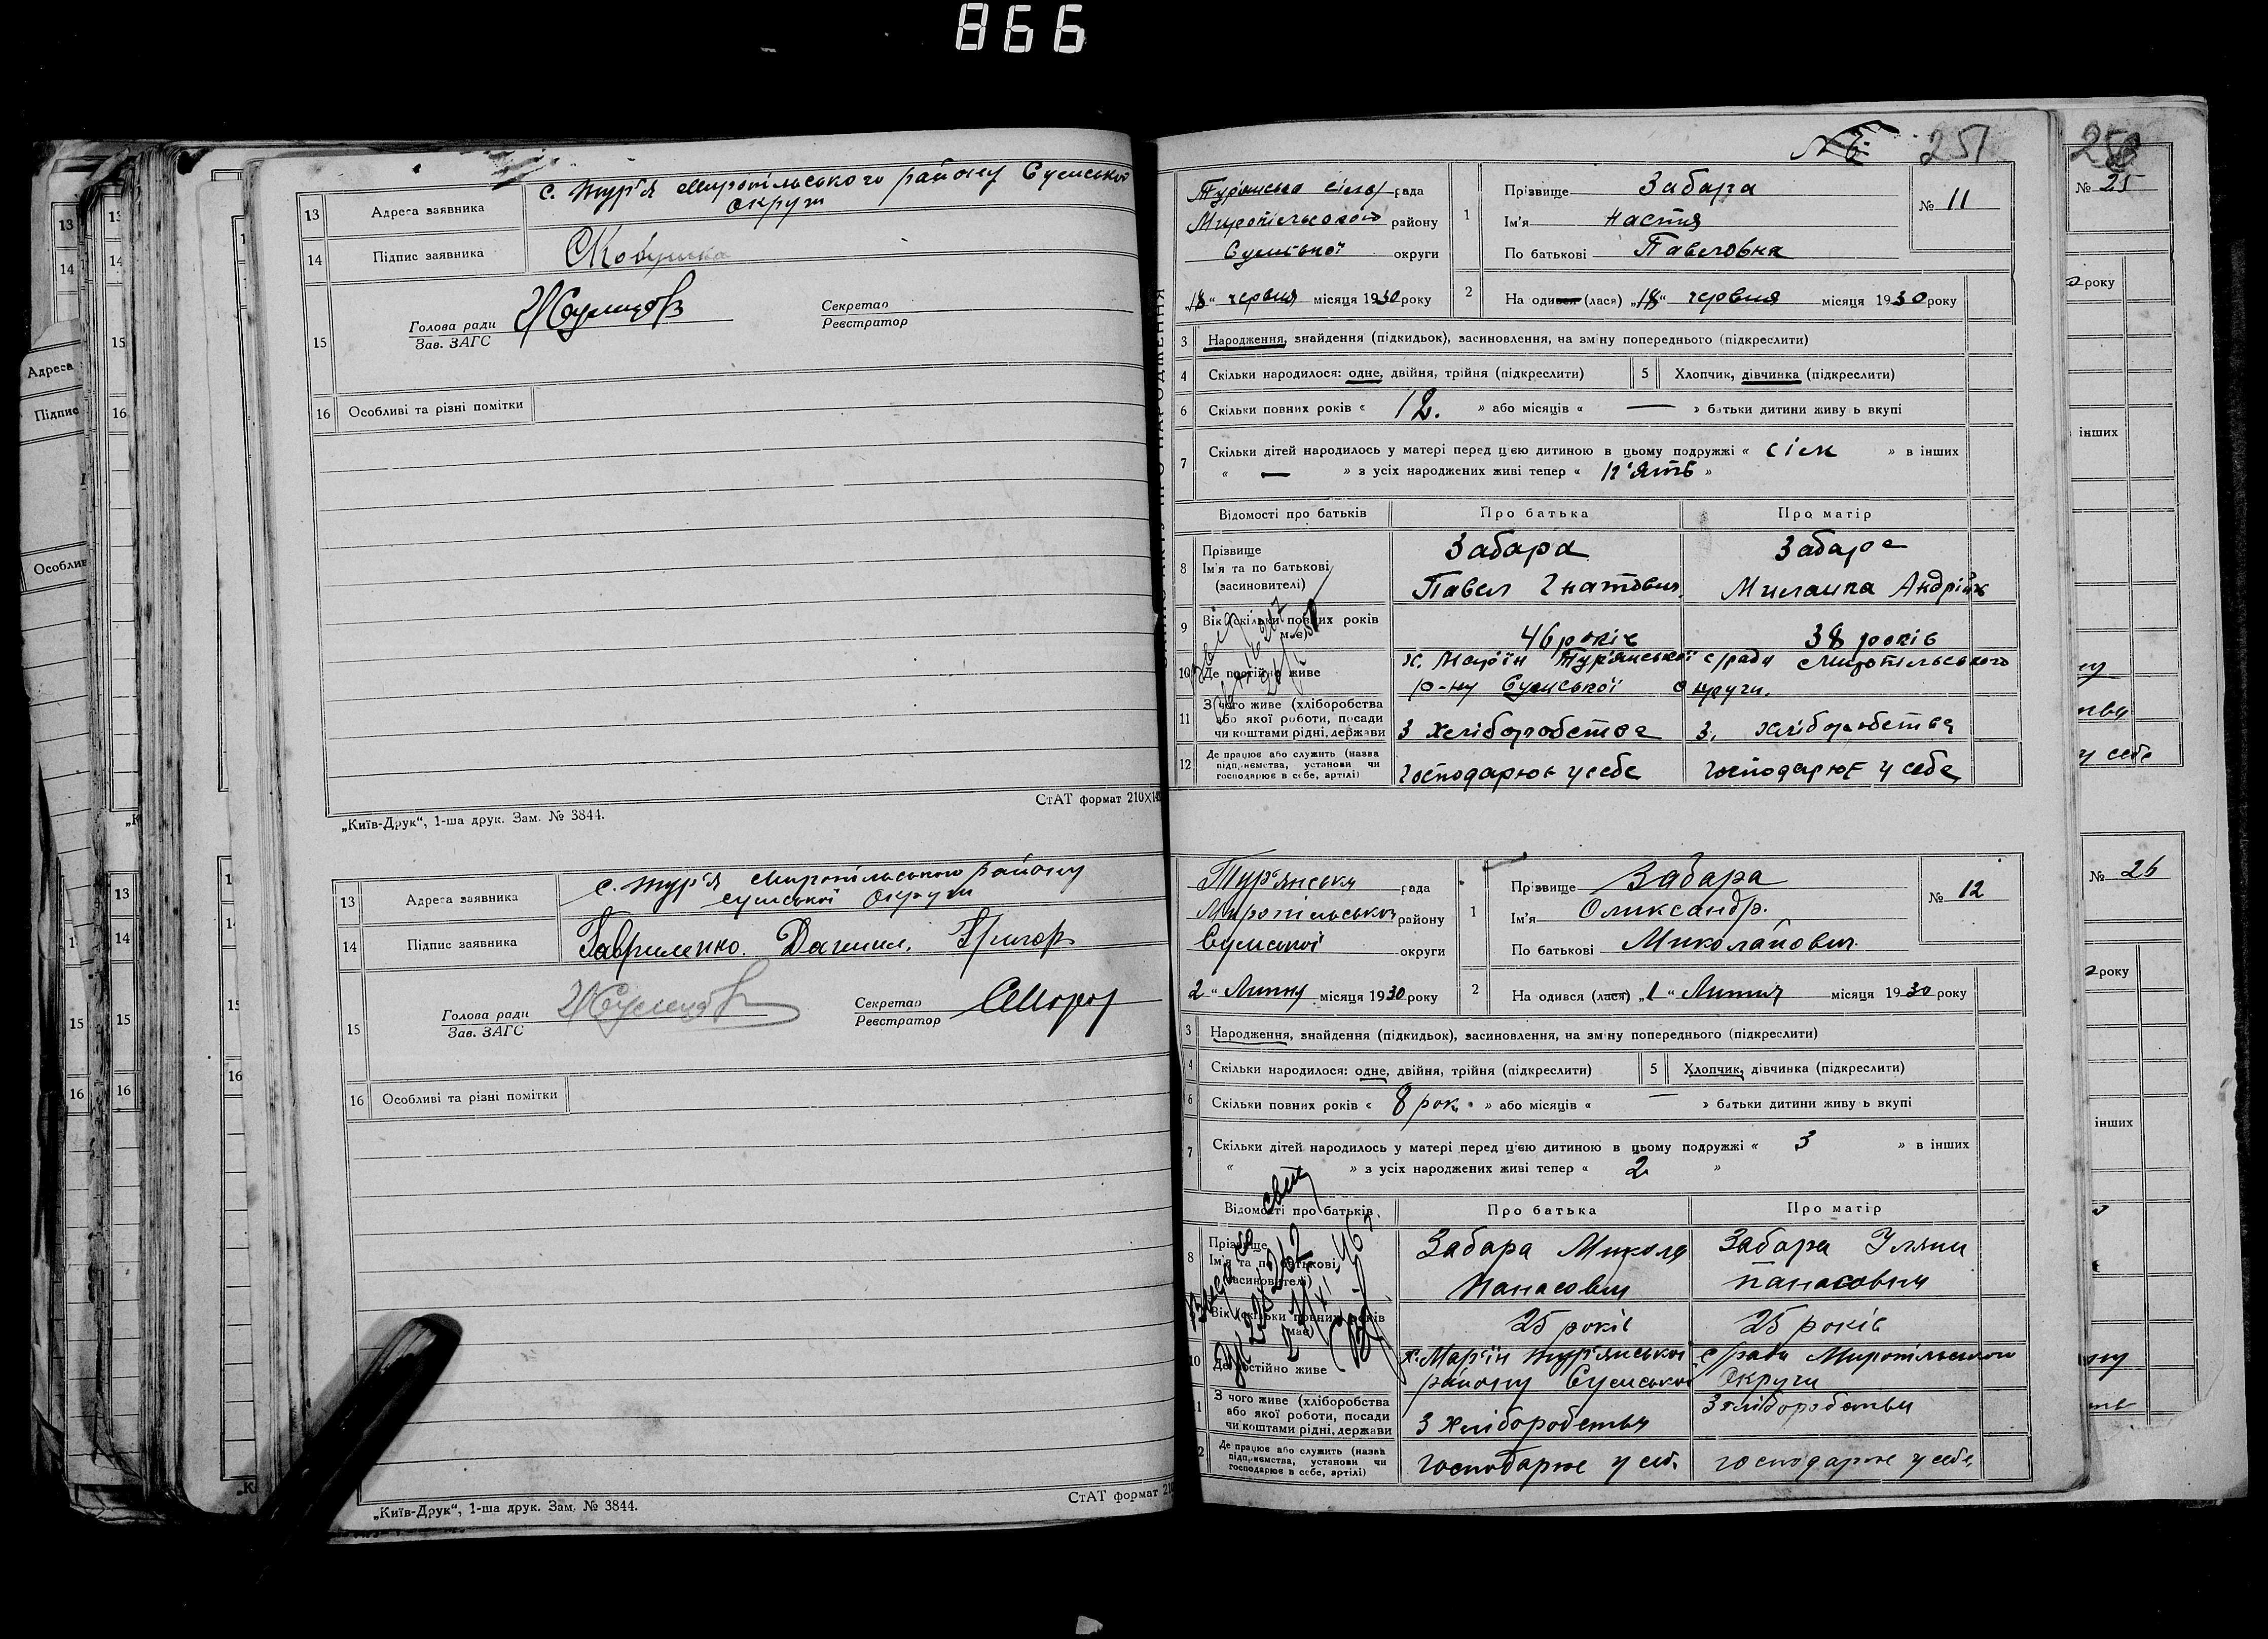 866
13 Адреса заявника с. Тур'я Миропільського району Сумської
округи
14 Підпис заявника
15 Голова ради
Зав. ЗАГС
Секретар
Реєстратор
16 Особливі та різні помітки
СтАТ формат 210×14
„Київ-Друк“, 1-ша друк. Зам. № 3844.
13 Адреса заявника с. Тур'я Миропільського району
Сумської округи
14 Підпис заявника Гавриленко. Данило. Григор
15 Голова ради
Зав. ЗАГС
Секретар
Реєстратор
16 Особливі та різні помітки
СтАТ формат 210
„Київ-Друк“, 1-ша друк. Зам. № 3844.
251
Турянська сіль рада
Миропільского району
Сумської округи
„18“ червня місяця 1930 року
1 Прізвище Забара
Ім'я Настя
По батькові Павловна
№ 11
2 На одився (лася) „18“ червня місяця 1930 року
3 Народження, знайдення (підкидьок), засиновлення, на зміну попереднього (підкреслити)
4 Скільки народилося: одне, двійня, трійня (підкреслити) 5 Хлопчик, дівчинка (підкреслити)
6 Скільки повних років « 12. » або місяців « — » батьки дитини живу ь вкупі
7 Скільки дітей народилось у матері перед цією дитиною в цьому подружжі « сім » в інших
« — » з усіх народжених живі тепер « п'ять »
Відомості про батьків Про батька Про матір
8 Прізвище
Ім'я та по батькові
(засиновителі)
Забара
Павел Гнатович
Забара
Миланка Андрійв
9 Вік (скільки повних років має) 46 років 38 років
10 Де постійно живе х. Мар'їн Турянської с/ради Миропільського
р-ну Сумської округи.
11 З чого живе (хліборобства
або якої роботи, посади
чи коштами рідні, держави
З хліборобства З. хліборобства
12 Де працює або служить (назва
підприємства, установи чи
господарює в себе, артілі)
господарює у себе господарює у себе
Тур'янська рада
Миропільської району
Сумської округи
2 “ Липня місяця 1930 року
1 Прізвище Забара
Ім'я Олександр.
По батькові Миколайович
№ 12
2 На одився (лася) „1“ Липня місяця 1930 року
3 Народження, знайдення (підкидьок), засиновлення, на зміну попереднього (підкреслити)
4 Скільки народилося: одне, двійня, трійня (підкреслити) 5 Хлопчик, дівчинка (підкреслити)
6 Скільки повних років « 8 рок. » або місяців « — » батьки дитини живу ь вкупі
7 Скільки дітей народилось у матері перед цією дитиною в цьому подружжі « 3 » в інших
« » з усіх народжених живі тепер « 2 »
Відомості про батьків Про батька Про матір
8 Прізвище
Ім'я та по батькові
(засиновителі)
Забара Микола
Панасович
Забара Уляни
Панасовни
Вік (скільки повних років має) 25 років 25 років
10 Де постійно живе х. Мар'їн Тур'янської с/ради Миропільського
району Сумської округи
З чого живе (хліборобства
або якої роботи, посади
чи коштами рідні, держави
З хліборобства З хліборобства
Де працює або служить (назва
підприємства, установи чи
господарює в себе, артілі)
господарює у себ. господарює у себе
№ 25
року
інших
у себе
№ 26
року
інших